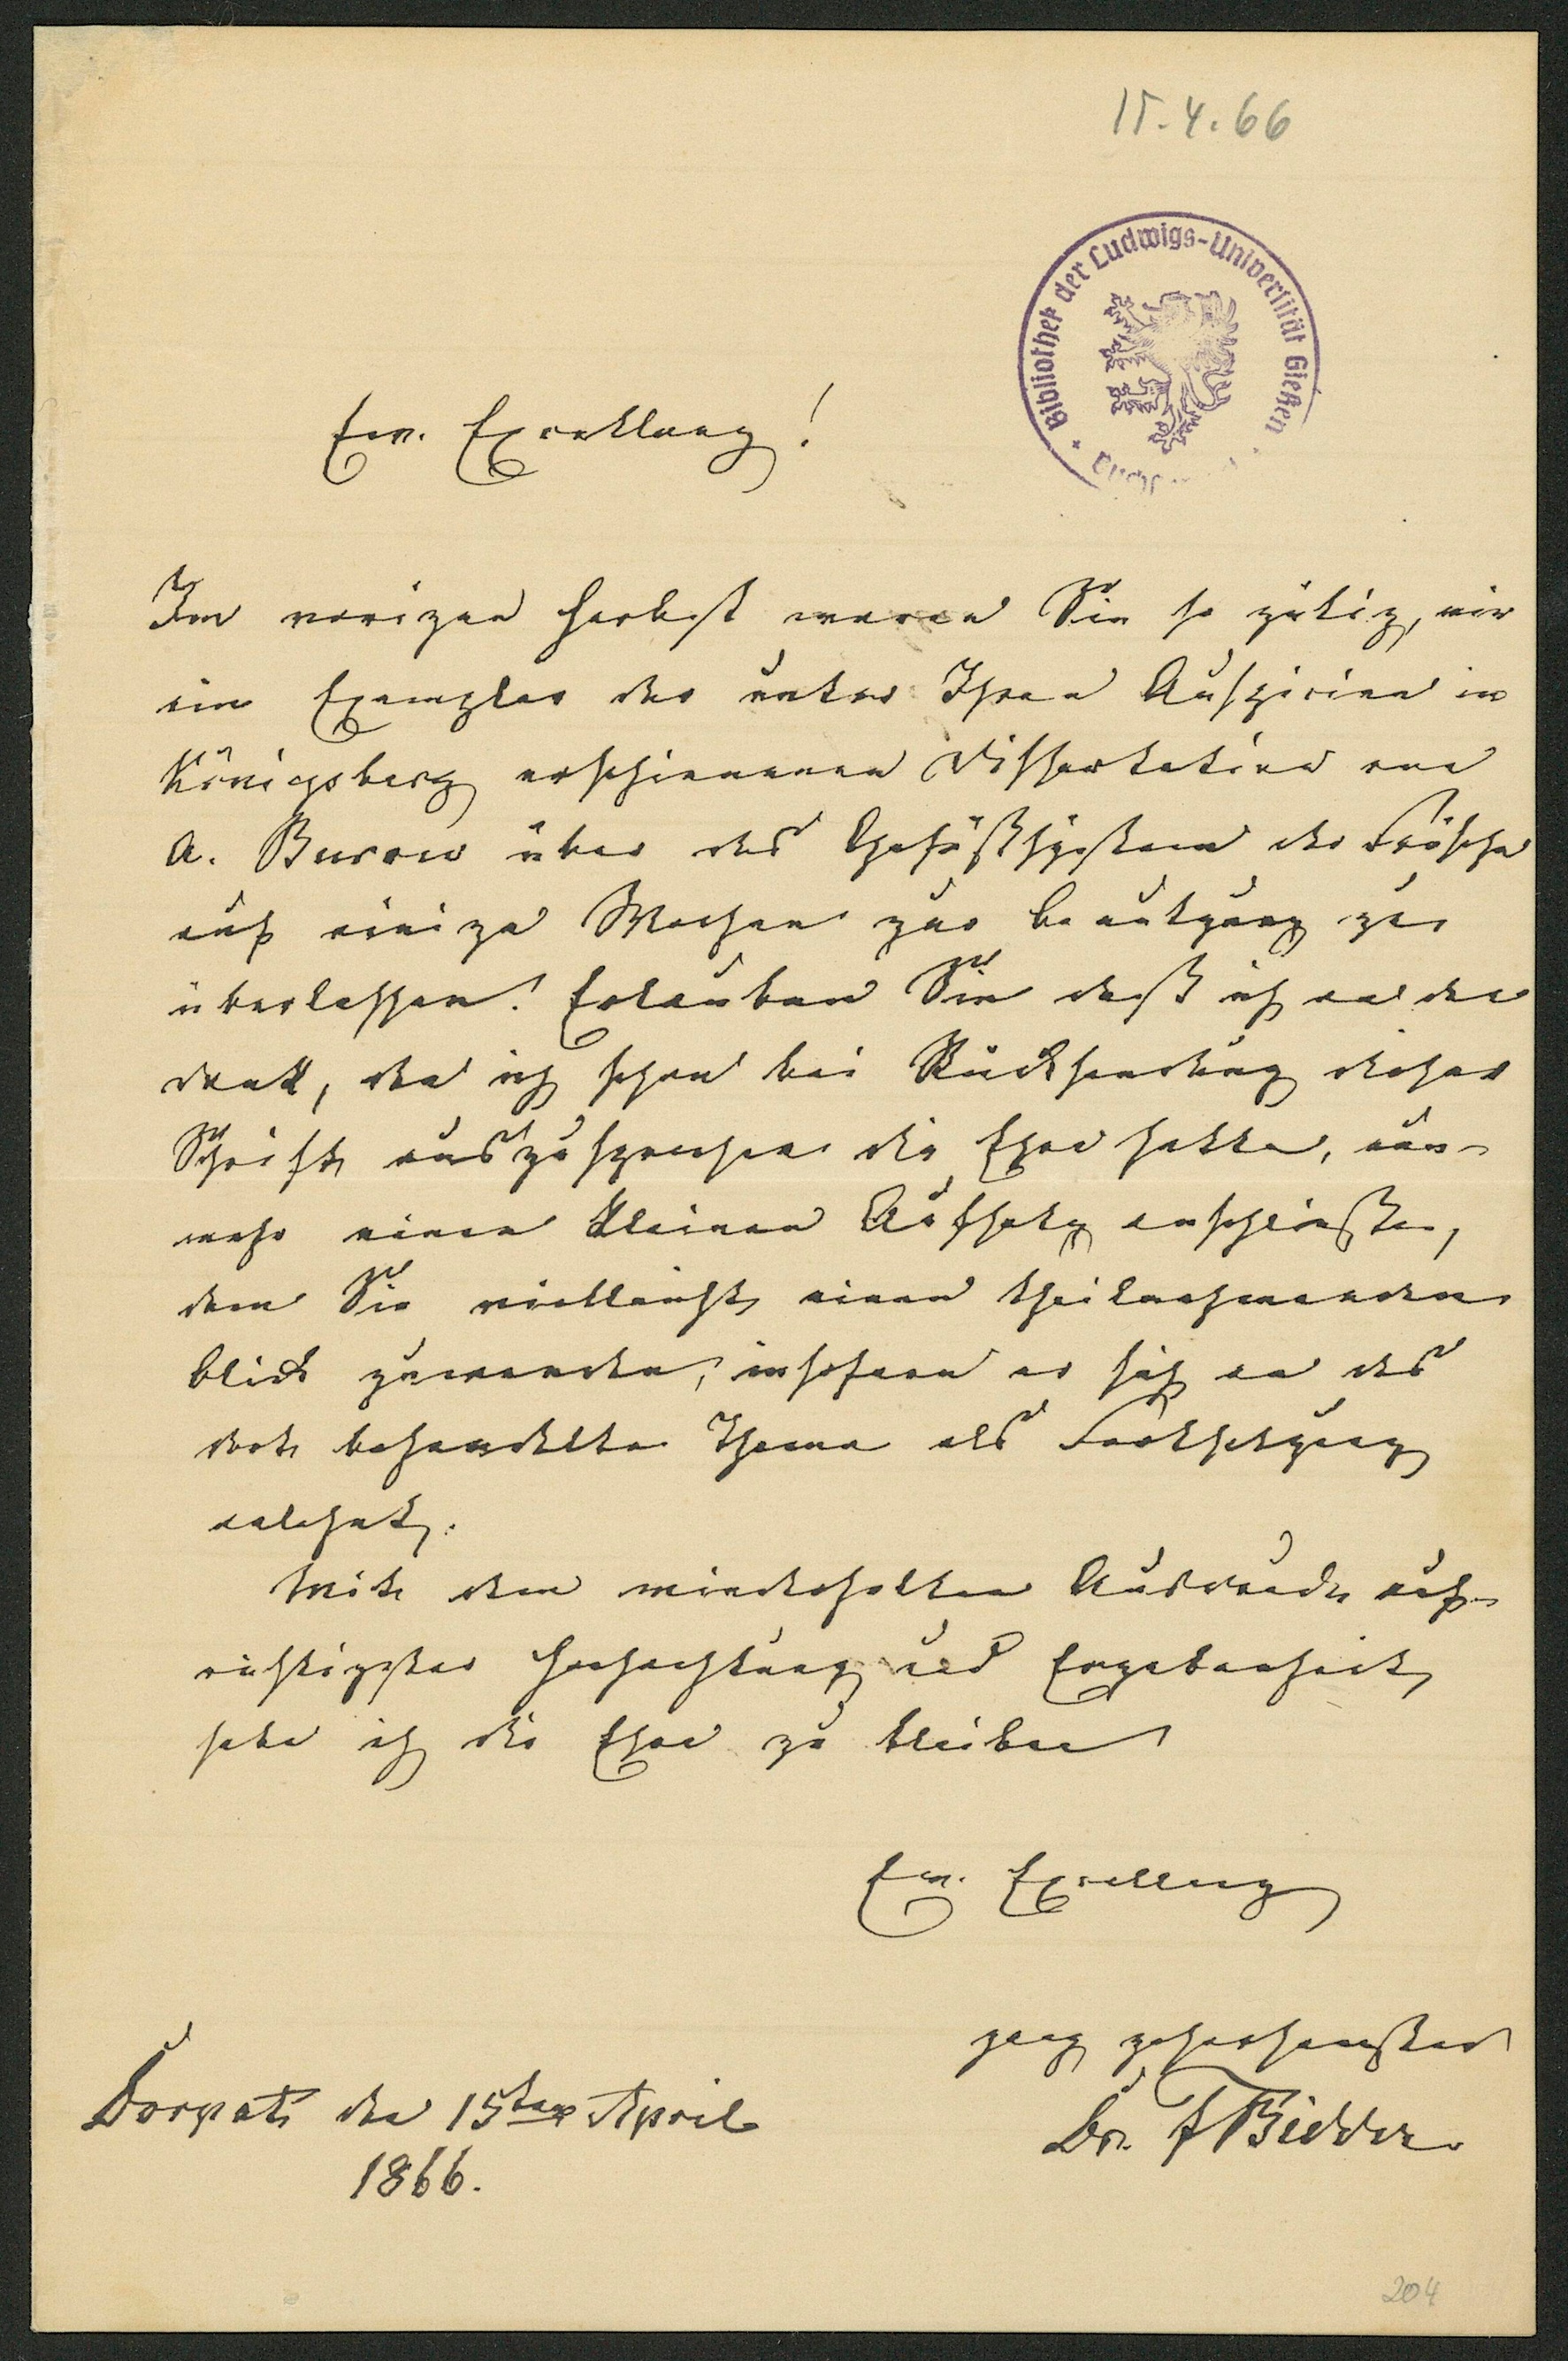 15.4.66
Bibliothek der Ludwigs-Universität Gießen
Ew. Excellenz!
Im vorigen Herbst waren Sie so gütig, mir
ein Exemplar der unter Ihren Auspicien in
Königsberg erschienenen Dissertation von
A. Burow über das Gefäßsystem der Frösche
auf einige Wochen zur Benutzung zu
überlassen. Erlauben Sie daß ich an den
Dank, den ich schon bei Rücksendung dieser
Schrift auszusprechen die Ehre hatte, nun-
mehr einen kleinen Aufsatz anschließe,
dem Sie vielleicht einen theilnehmenden
Blick zuwenden, insofern er sich an das
dort behandelte Thema als Fortsetzung
anlehnt.
Mit dem wiederholten Ausdruck auf-
richtigster Hochachtung und Ergebenheit
habe ich die Ehre zu bleiben
Ew. Excellenz
ganz gehorsamster
Dr. F Bidder
Dorpat den 15ten April
1866.
204